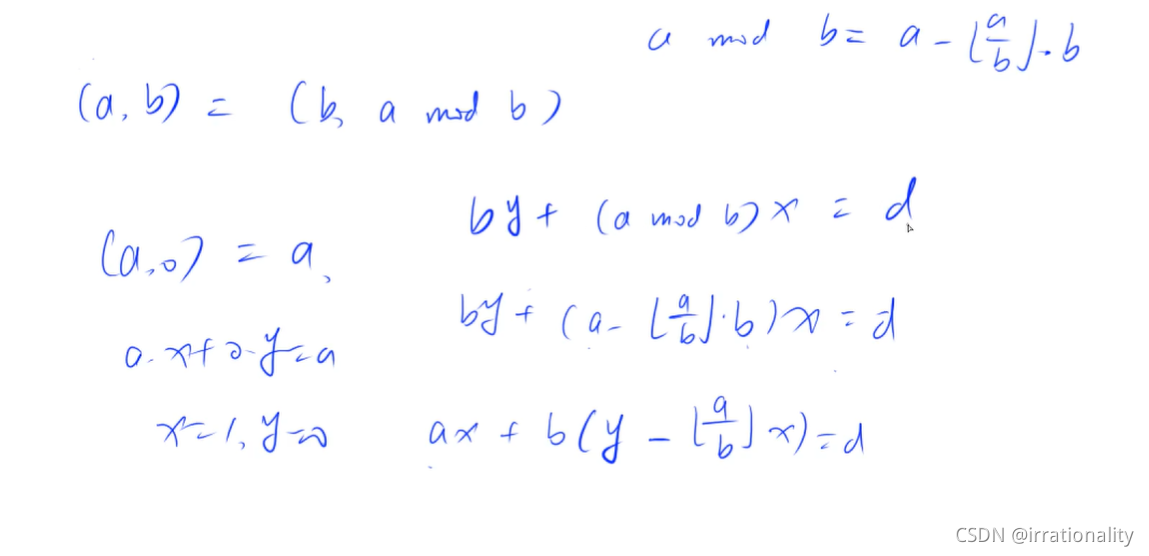 a mod b = a - ⌊a/b⌋·b
(a, b) = (b, a mod b)
by + (a mod b)x = d
(a, 0) = a,
by + (a - ⌊a/b⌋·b)x = d
a·x + 0·y = a
x = 1, y = 0
ax + b(y - ⌊a/b⌋x) = d
CSDN @irrationality